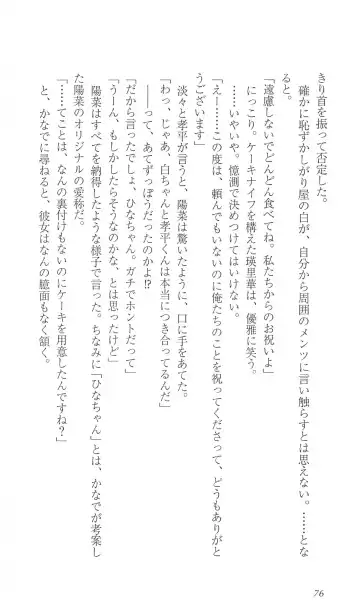 きり首を振って否定した。
確かに恥ずかしがり屋の白が、自分から周囲のメンツに言い触らすとは思えない。……とな
ると。
「遠慮しないでどんどん食べてね。私たちからのお祝いよ」
にっこり。ケーキナイフを構えた瑛里華は、優雅に笑う。
……いやいや。憶測で決めつけてはいけない。
「えー……この度は、頼んでもいないのに俺たちのことを祝ってくださって、どうもありがと
うございます」
淡々と孝平が言うと、陽菜は驚いたように、口に手をあてた。
「わっ、じゃあ、白ちゃんと孝平くんは本当につき合ってるんだ」
――って、あてずっぽうだったのかよ!?
「だから言ったでしょ、ひなちゃん。ガチでホントだって」
「うーん、もしかしたらそうなのかな、とは思ったけど」
陽菜はすべてを納得したような様子で言った。ちなみに「ひなちゃん」とは、かなでが考案し
た陽菜のオリジナルの愛称だ。
「……てことは、なんの裏付けもないのにケーキを用意したんですね?」
と、かなでに尋ねると、彼女はなんの臆面もなく頷く。
76